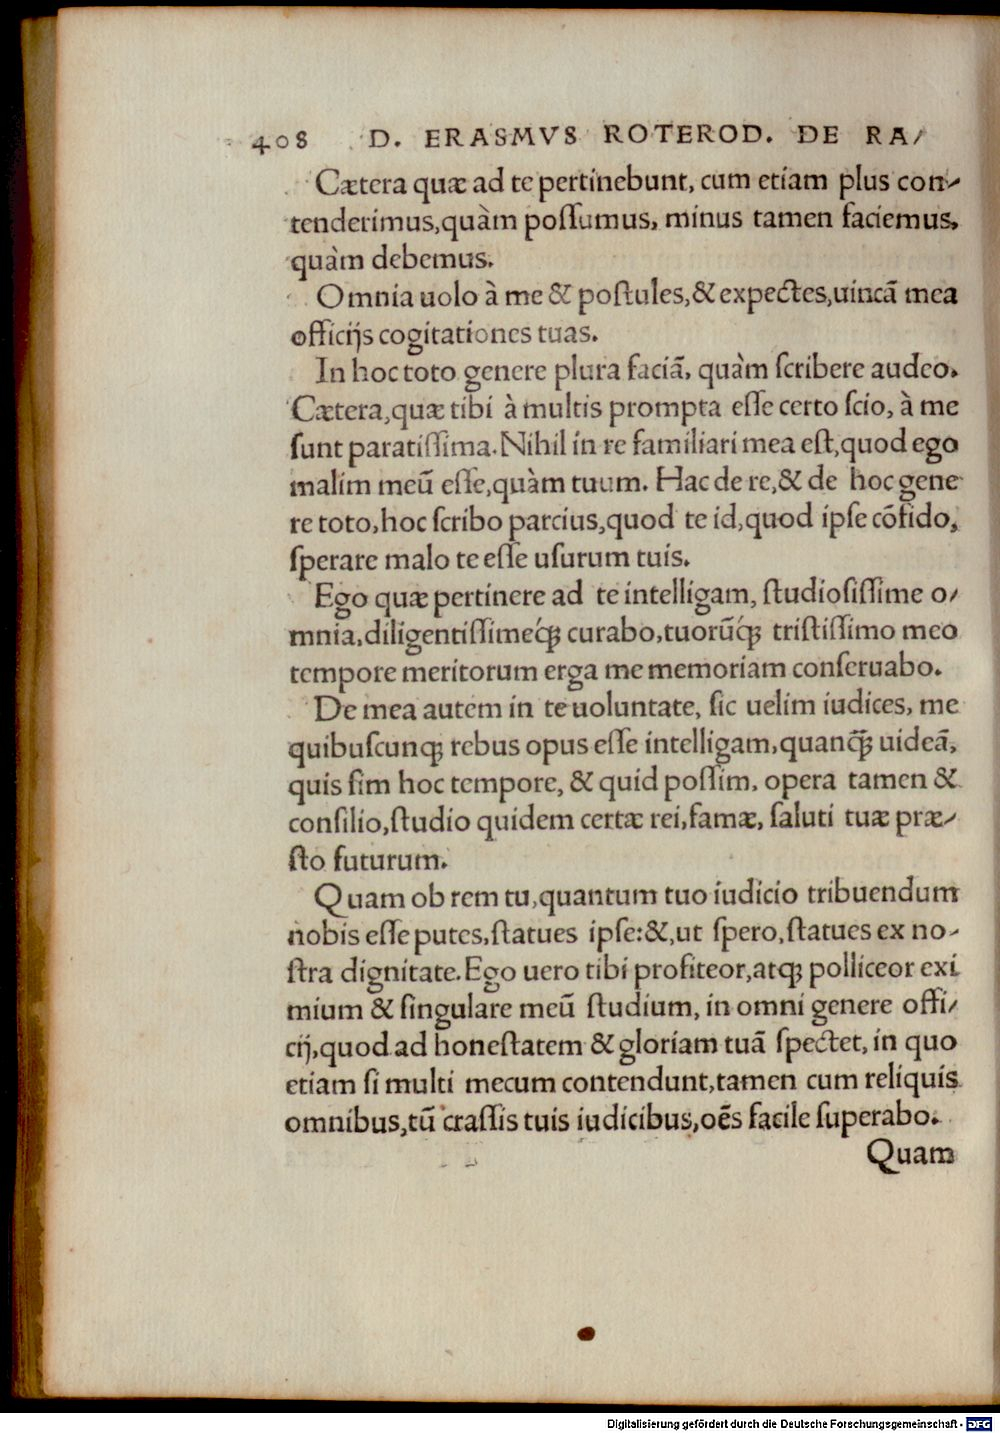 408 D. ERASMVS ROTEROD. DE RA/
Cætera quæ ad te pertinebunt, cum etiam plus con-
tenderimus, quàm poſſumus, minus tamen faciemus,
quàm debemus.
Omnia uolo à me & poſtules, & expectes, uincã mea
officijs cogitationes tuas.
In hoc toto genere plura faciã, quàm ſcribere audeo.
Cætera, quæ tibi à multis prompta eſſe certo ſcio, à me
ſunt paratiſſima. Nihil in re familiari mea eſt, quod ego
malim meũ eſſe, quàm tuum. Hac de re, & de hoc gene
re toto, hoc ſcribo parcius, quod te id, quod ipſe cõfido,
ſperare malo te eſſe uſurum tuis.
Ego quæ pertinere ad te intelligam, ſtudioſiſſime o/
mnia, diligentiſſimeq́ꝫ curabo, tuorũq́ꝫ triſtiſſimo meo
tempore meritorum erga me memoriam conſeruabo.
De mea autem in te uoluntate, ſic uelim iudices, me
quibuſcunqꝫ rebus opus eſſe intelligam, quanq̃ꝫ uideã,
quis ſim hoc tempore, & quid poſſim, opera tamen &
conſilio, ſtudio quidem certæ rei, famæ, ſaluti tuæ præ-
ſto futurum.
Quam ob rem tu, quantum tuo iudicio tribuendum
nobis eſſe putes, ſtatues ipſe: &, ut ſpero, ſtatues ex no-
ſtra dignitate. Ego uero tibi profiteor, atqꝫ polliceor exi
mium & ſingulare meũ ſtudium, in omni genere offi/
cij, quod ad honeſtatem & gloriam tuã ſpectet, in quo
etiam ſi multi mecum contendunt, tamen cum reliquis
omnibus, tũ craſſis tuis iudicibus, oẽs facile ſuperabo.
Quam
Digitalisierung gefördert durch die Deutsche Forschungsgemeinschaft - DFG